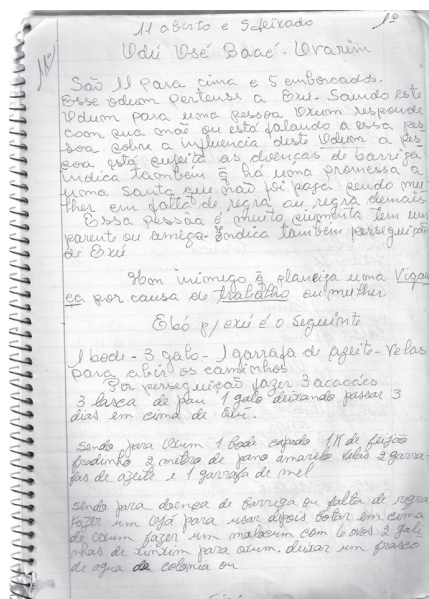 11 aberto e 5 feixado
1º
11º
Odú Osé Baaé - Ovarim
São 11 para cima e 5 emborcados.
Esse odum pertense a Exú. Saindo este
Odum para uma pessoa Oxum responde
com sua mãe ou está falando a essa pes
soa sobre a influencia deste Odum a pes
soa está sujeita as doenças de barriga
indica também q há uma promessa a
uma Santa que não foi paga sendo mu
lher em falta de regra ou regra demais
Essa pessôa é muito ciumenta tem um
parente ou amigo - Indica também perseguição
de Exú
Hom inimigo q planeija uma Vigan
ça por causa de trabalho ou mulher
Ebó p/ exú é o Seguinte
1 bode - 3 galo - 1 garrafa de azeite - Velas
para abrir os caminhos
Por perseguição fazer 3 acaçás
3 lasca de pau 1 galo deixando passar 3
dias em cima de exú.
sendo para Oxum 1 bode capado 1K de feijão
fradinho 2 métro de pano amarelo velas 2 garra-
fas de azeite e 1 garrafa de mel
sendo para doença de barriga ou falta de regra
fazer um ojá para usar depois botar em cima
de oxum fazer um malacum com 6 ovos 2 gali
nhas de xinxim para oxum. deixar um frasco
de agua de colonia ou